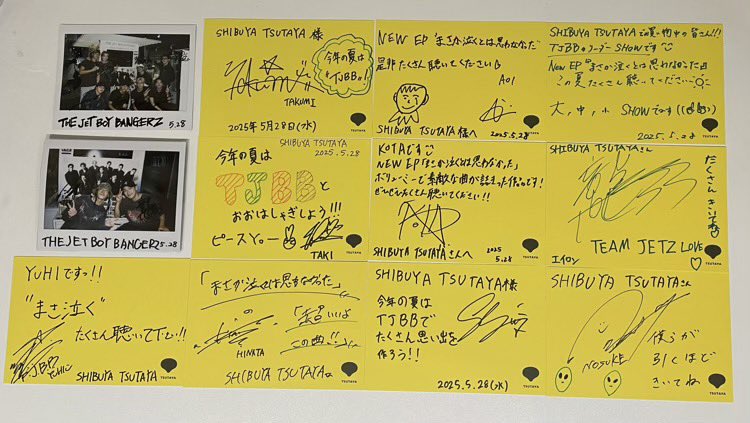 THE JET BOY BANGERZ
5.28
SHIBUYA TSUTAYA 様
今年の夏は
"TJBB"!
TAKUMI
2025年5月28日(水)
TSUTAYA
NEW EP "まさか泣くとは思わなかった"
是非たくさん聴いてください
AOI
SHIBUYA TSUTAYA様へ 2025.5.28
TSUTAYA
SHIBUYA TSUTAYAでお買い物中の皆さん!!
TJBBのリーダー SHOWです
New EP『まさか泣くとは思わなかった』
この夏たくさん聴いてください
大,中,小 SHOWです
2025.5.28
TSUTAYA
THE JET BOY BANGERZ 5.28
SHIBUYA TSUTAYA
2025.5.28
今年の夏は
TJBBと
おおはしゃぎしよう!!!
ピースYo-
TAKI
TSUTAYA
KOTAです
NEW EP「まさか泣くとは思わなかった」
ボリューミーで素敵な曲が詰まった作品です!
ぜひぜひたくさん聴いてください!!
SHIBUYA TSUTAYAさんへ 2025
5.28
TSUTAYA
SHIBUYA TSUTAYAさん
たくさん
きいてね
TEAM JETZ LOVE
エイロン
TSUTAYA
YUHIです。!!
"まさ泣く"
たくさん聴いて下さい!!
TJBB
YUHI
SHIBUYA TSUTAYA
TSUTAYA
「まさか泣くとは思わなかった」
「超いいよ
この曲!!」
HINATA
SHIBUYA TSUTAYA
TSUTAYA
SHIBUYA TSUTAYA様
今年の夏は
TJBBで
たくさん思い出を
作ろう!!
2025.5.28(水)
TSUTAYA
SHIBUYA TSUTAYAさん
NOSUKE
僕らが
引くほど
きいてね
TSUTAYA